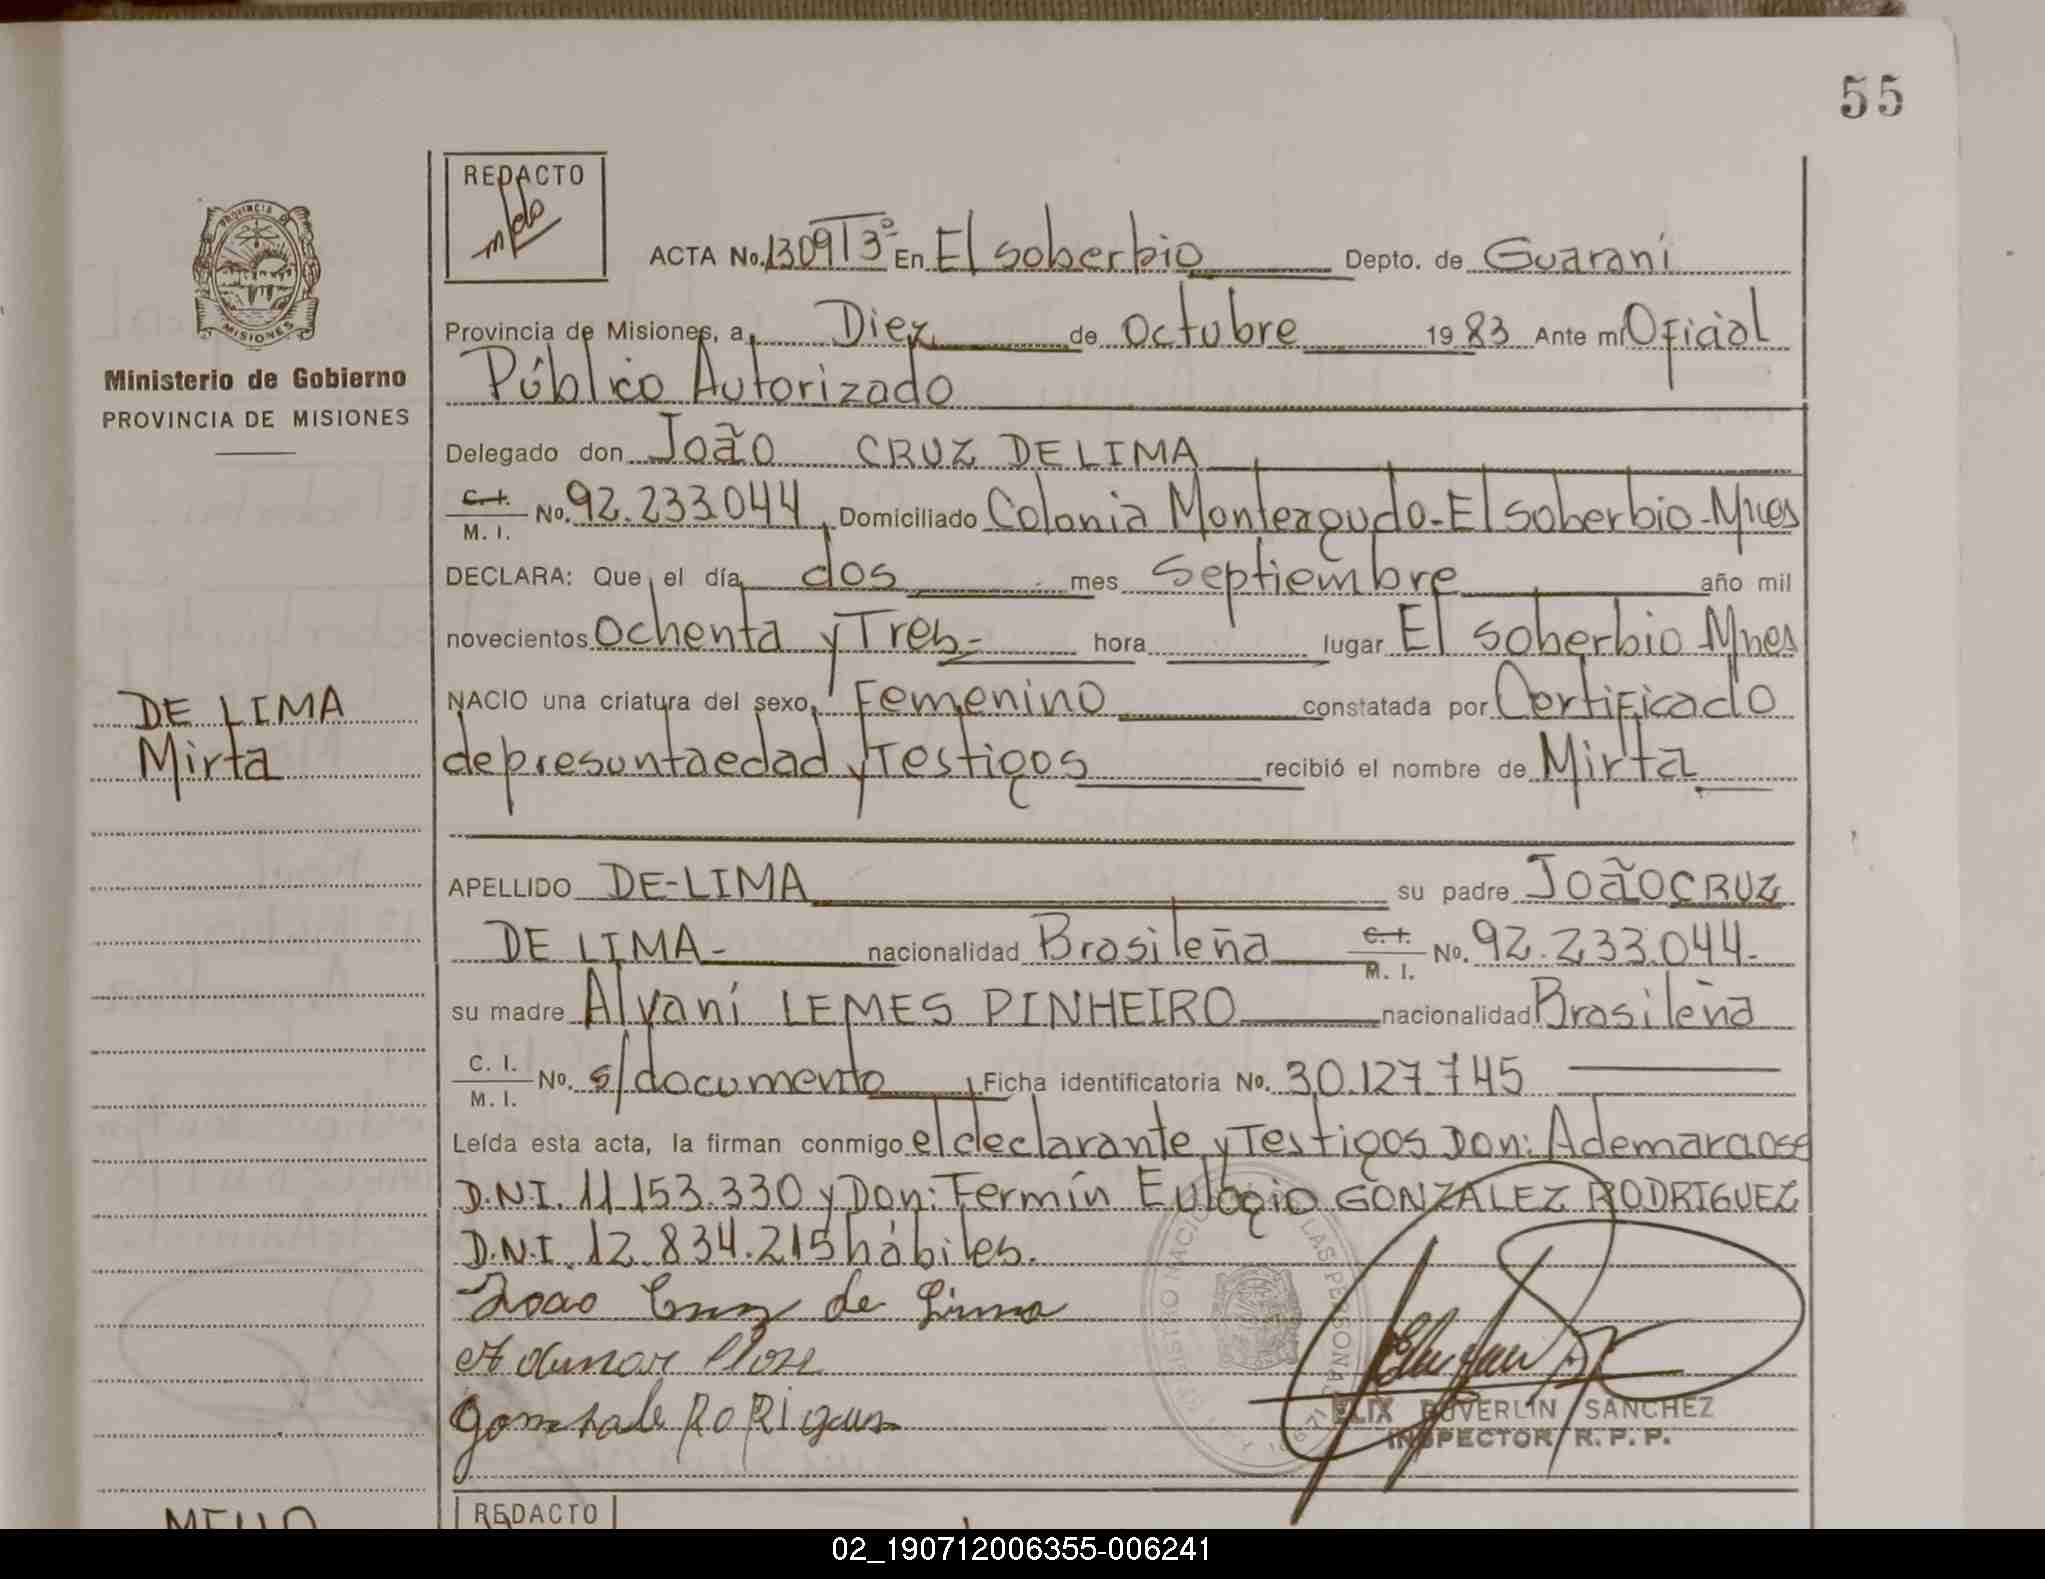 55
REDACTO
ACTA No. 1309 T 3º En El soberbio Depto. de Guaraní
PROVINCIA DE MISIONES
Provincia de Misiones, a Diez de Octubre 1983 Ante mí Oficial
Ministerio de Gobierno
PROVINCIA DE MISIONES
Público Autorizado
Delegado don João CRUZ DE LIMA
C. I. M. I. No. 92.233.044 Domiciliado Colonia Monteagudo-El soberbio-Mnes
DECLARA: Que el día dos mes septiembre año mil
novecientos ochenta y Tres- hora lugar El soberbio Mnes
DE LIMA
Mirta
NACIO una criatura del sexo Femenino constatada por Certificado
de presunta edad y Testigos recibió el nombre de Mirta
APELLIDO DE-LIMA su padre João CRUZ
DE LIMA- nacionalidad Brasileña C. I. M. I. No. 92.233.044-
su madre Alvaní LEMES PINHEIRO nacionalidad Brasileña
C. I. M. I. No. s/documento Ficha identificatoria No. 30.127.745
Leída esta acta, la firman conmigo el declarante y Testigos Don: Ademar
D.N.I. 11.153.330 y Don: Fermín Eulogio GONZALEZ RODRIGUEZ
D.N.I. 12.834.215 hábiles.
Joao Cruz de Lima
LAS PERSONAS
SANCHEZ
INSPECTOR R. P. P.
REDACTO
02_190712006355-006241